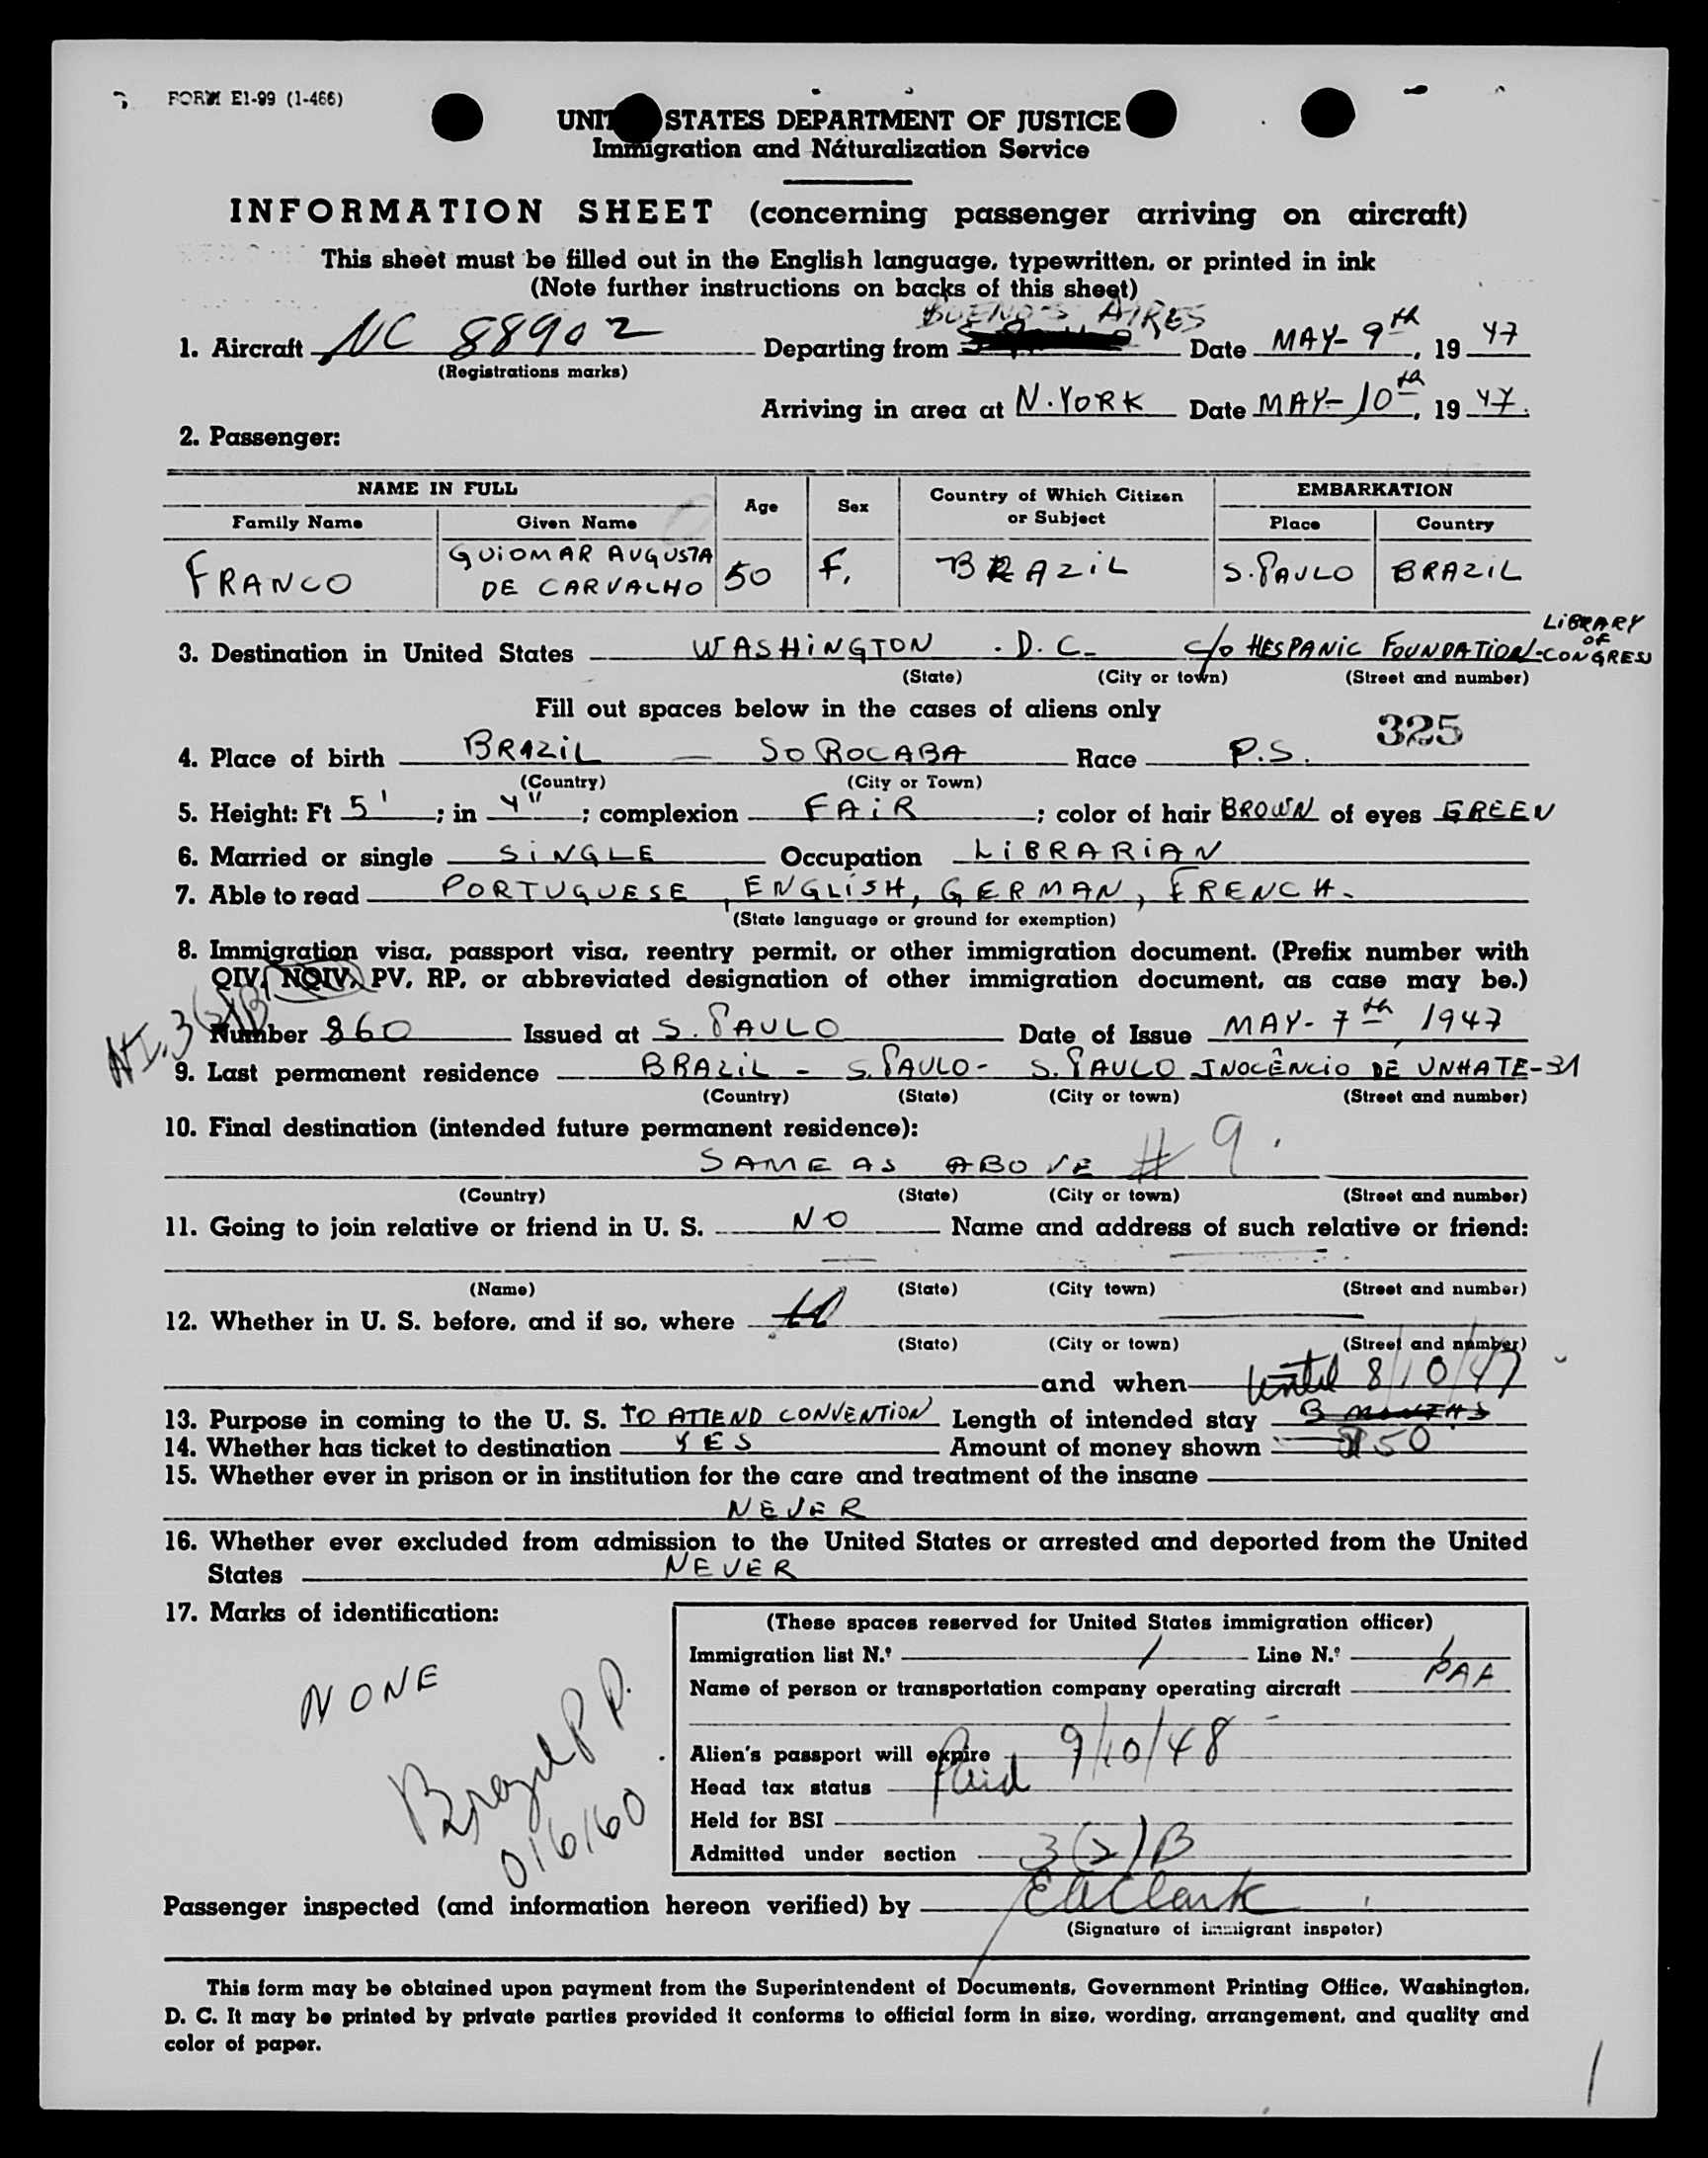 FORM E1-99 (1-466)
UNITED STATES DEPARTMENT OF JUSTICE
Immigration and Naturalization Service
INFORMATION SHEET (concerning passenger arriving on aircraft)
This sheet must be filled out in the English language, typewritten, or printed in ink
(Note further instructions on backs of this sheet)
BUENOS AIRES
1. Aircraft NC 88902 Departing from Date MAY-9th, 19 47
(Registrations marks)
Arriving in area at N.YORK Date MAY-10th, 19 47.
2. Passenger:
NAME IN FULL Age Sex Country of Which Citizen or Subject EMBARKATION
Family Name Given Name Place Country
FRANCO GUIOMAR AUGUSTA DE CARVALHO 50 F. BRAZIL S.PAULO BRAZIL
3. Destination in United States WASHINGTON. D.C. c/o HESPANIC FOUNDATION-LIBRARY OF CONGRESS
(State) (City or town) (Street and number)
Fill out spaces below in the cases of aliens only
325
4. Place of birth BRAZIL — SOROCABA Race P.S.
(Country) (City or Town)
5. Height: Ft 5' ; in 4" ; complexion FAIR ; color of hair BROWN of eyes GREEN
6. Married or single SINGLE Occupation LIBRARIAN
7. Able to read PORTUGUESE, ENGLISH, GERMAN, FRENCH.
(State language or ground for exemption)
8. Immigration visa, passport visa, reentry permit, or other immigration document. (Prefix number with
QIV, NQIV, PV, RP, or abbreviated designation of other immigration document, as case may be.)
Number 860 Issued at S. PAULO Date of Issue MAY-7th, 1947
9. Last permanent residence BRAZIL - S.PAULO- S.PAULO INOCÊNCIO DE UNHATE-31
(Country) (State) (City or town) (Street and number)
10. Final destination (intended future permanent residence):
SAME AS ABOVE # 9.
(Country) (State) (City or town) (Street and number)
11. Going to join relative or friend in U. S. NO Name and address of such relative or friend:
(Name) (State) (City town) (Street and number)
12. Whether in U. S. before, and if so, where
(State) (City or town) (Street and number)
and when until 8/10/47
13. Purpose in coming to the U. S. TO ATTEND CONVENTION Length of intended stay 3 MONTHS
14. Whether has ticket to destination YES Amount of money shown $50
15. Whether ever in prison or in institution for the care and treatment of the insane
NEVER
16. Whether ever excluded from admission to the United States or arrested and deported from the United
States NEVER
17. Marks of identification:
NONE
Brazil P.P.
016160
(These spaces reserved for United States immigration officer)
Immigration list N.º / Line N.º /
Name of person or transportation company operating aircraft PAA
Alien's passport will expire 9/10/48
Head tax status Paid
Held for BSI
Admitted under section 3(2)B
Passenger inspected (and information hereon verified) by EAClark
(Signature of immigrant inspetor)
This form may be obtained upon payment from the Superintendent of Documents, Government Printing Office, Washington,
D. C. It may be printed by private parties provided it conforms to official form in size, wording, arrangement, and quality and
color of paper.